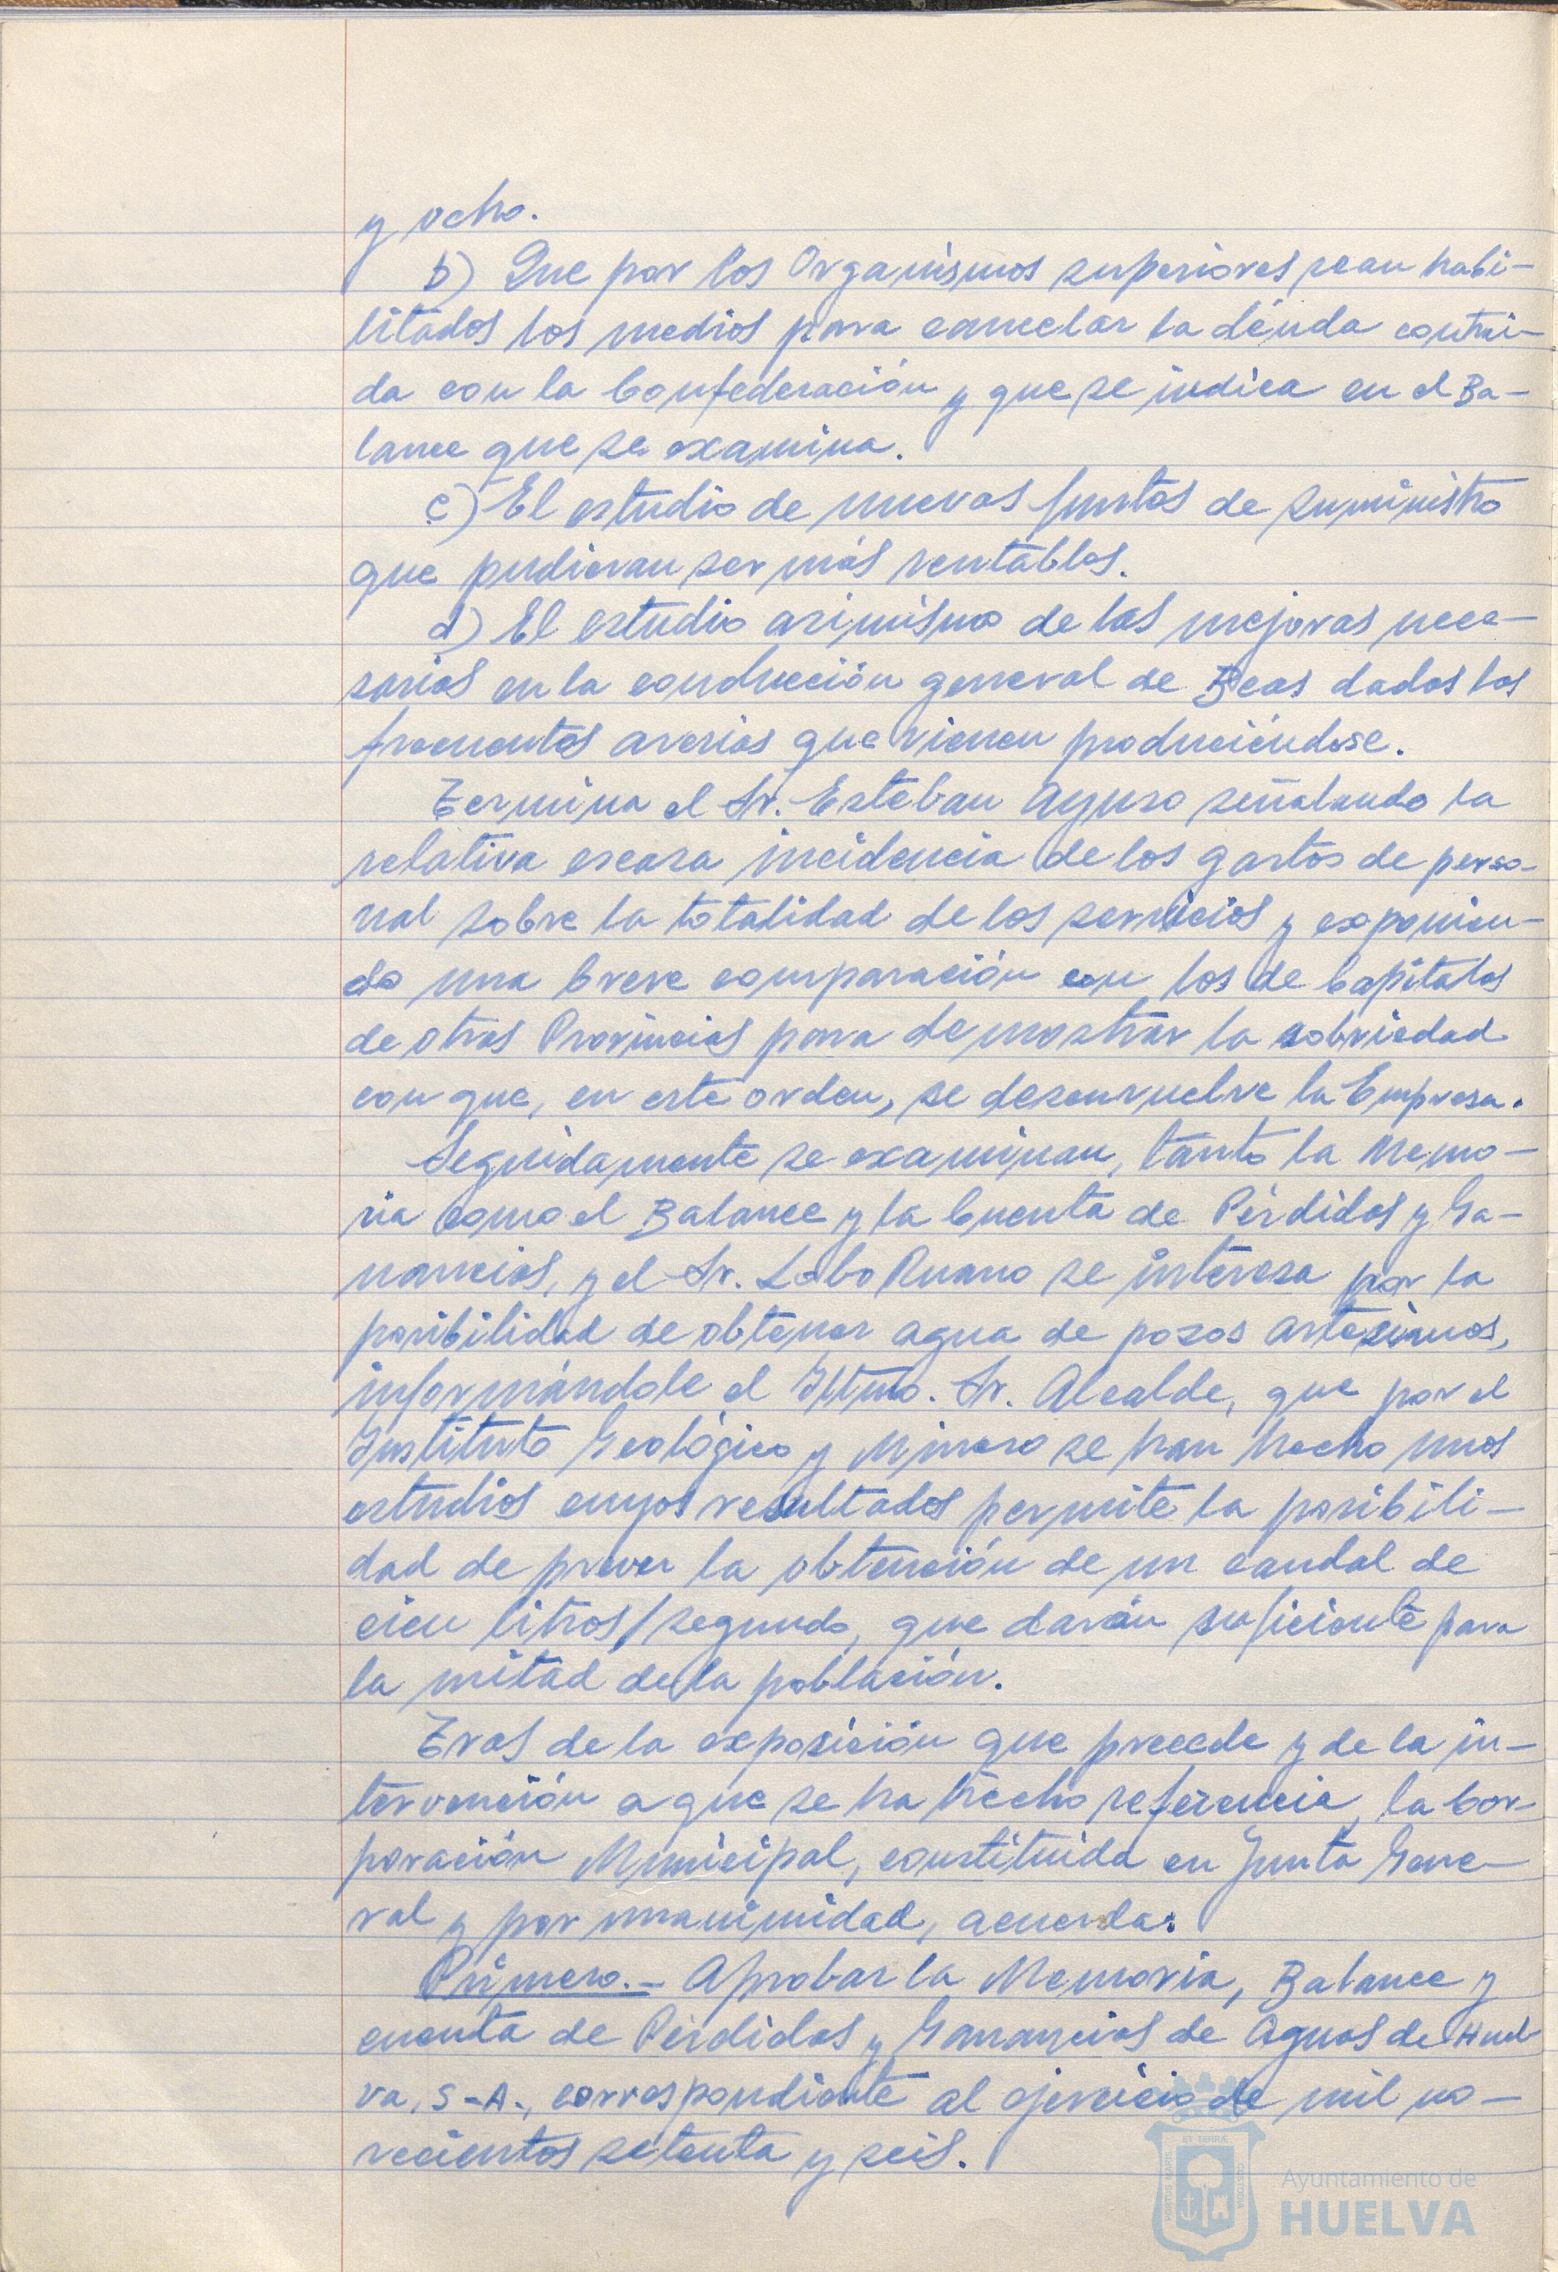 y ocho.
b) Que por los Organismos superiores sean habi-
litados los medios para cancelar la deuda contrai-
da con la Confederación y que se indica en el Ba-
lance que se examina.
c) El estudio de nuevos puntos de suministro
que pudieran ser más rentables.
d) El estudio asimismo de las mejoras nece-
sarias en la conducción general de Beas dados los
frecuentes averias que vienen produciéndose.
Termina el Sr. Esteban Ayuso señalando la
relativa escasa incidencia de los gastos de perso-
nal sobre la totalidad de los servicios y exponien-
do una breve comparación con los de Capitales
de otras Provincias para demostrar la sobriedad
con que, en este orden, se desenvuelve la Empresa.
Seguidamente se examinan, tanto la Memo-
ria como el Balance y la Cuenta de Pérdidas y Ga-
nancias, y el Sr. Lobo Ruano se interesa por la
posibilidad de obtener agua de pozos artesianos,
informándole el Iltmo. Sr. Alcalde, que por el
Instituto Geológico y Minero se han hecho unos
estudios cuyos resultados permite la posibili-
dad de prever la obtención de un caudal de
cien litros/segundo, que darán suficiente para
la mitad de la población.
Tras de la exposición que precede y de la in-
tervención a que se ha hecho referencia, la Cor-
poración Municipal, constituida en Junta Gene-
ral y por unanimidad, acuerda:
Primero.- Aprobar la Memoria, Balance y
cuenta de Pérdidas y Ganancias de Aguas de Huel-
va, S-A., correspondiente al ejercicio de mil no-
vecientos setenta y seis.
PORTUS MARIS ET TERRAE CUSTODIA
Ayuntamiento de
HUELVA